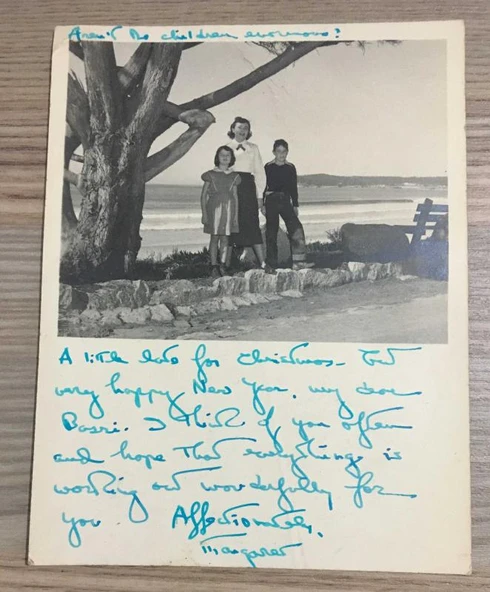 Aren't the children enormous?
A little late for Christmas - but
very happy New Year, my dear
Basri. I think of you often
and hope that everything is
working out wonderfully for
you Affectionately,
Margaret